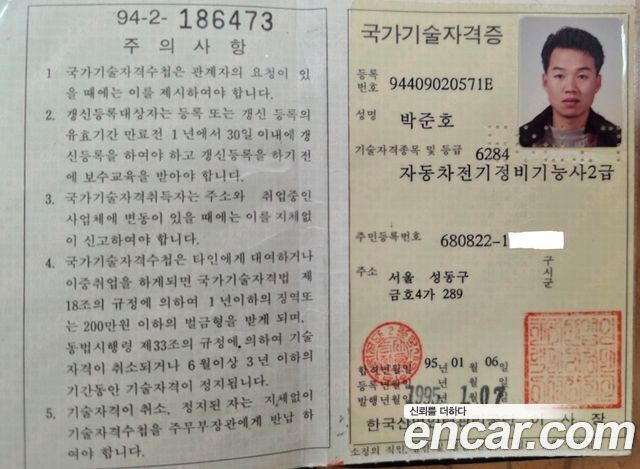 94-2- 186473
주 의 사 항
1 국가기술자격수첩은 관계자의 요청이 있
을 때에는 이를 제시하여야 합니다.
2. 갱신등록대상자는 등록 또는 갱신 등록의
유효기간 만료전 1년에서 30일 이내에 갱
신등록을 하여야 하고 갱신등록을 하기 전
에 보수교육을 받아야 합니다.
3. 국가기술자격취득자는 주소와 취업중인
사업체에 변동이 있을 때에는 이를 지체없
이 신고하여야 합니다.
4. 국가기술자격수첩은 타인에게 대여하거나
이중취업을 하게되면 국가기술자격법 제
18조의 규정에 의하여 1년이하의 징역또
는 200만원 이하의 벌금형을 받게 되며,
동법시행령 제33조의 규정에 의하여 기술
자격이 취소되거나 6월이상 3년 이하의
기간동안 기술자격이 정지됩니다.
5. 기술자격이 취소, 정지된 자는 지체없이
기술자격수첩을 주무부장관에게 반납 하
여야 합니다.
국가기술자격증
등록
번호 94409020571E
성명 박준호
기술자격종목 및 등급 6284
자동차전기정비기능사2급
주민등록번호 680822-1
구시군
주소 서울 성동구
금호4가 289
합격년월일 95년 01월 06일
등록년월일
발행년월일 1995 1.07
신뢰를 더하다
한국산
encar.com
소정의 직인,